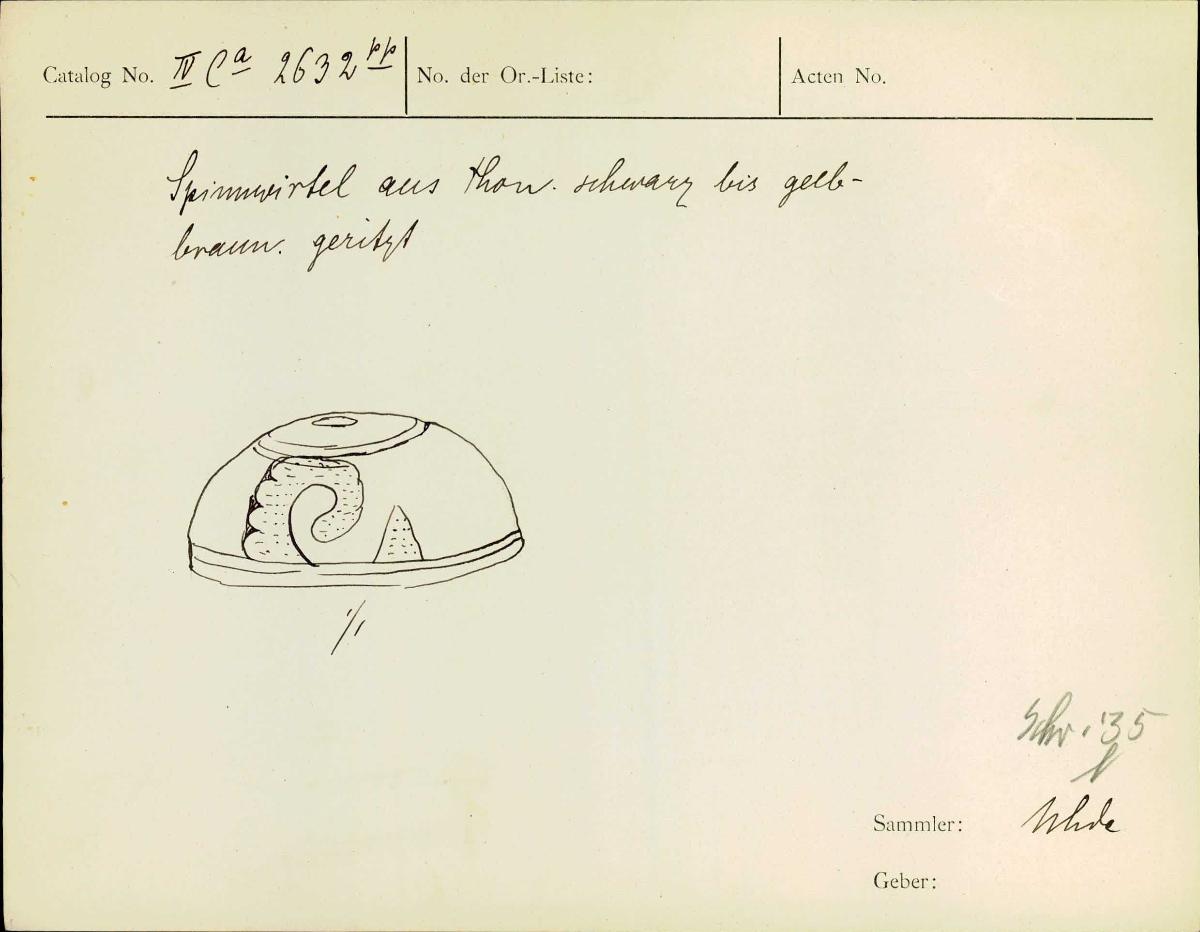 Catalog No. IV Ca 2632 pp No. der Or.-Liste: Acten No.
Spinnwirtel aus Thon. schwarz bis gelb-
braun. geritzt
1/1
Schr. '35
Sammler: Uhde
Geber: